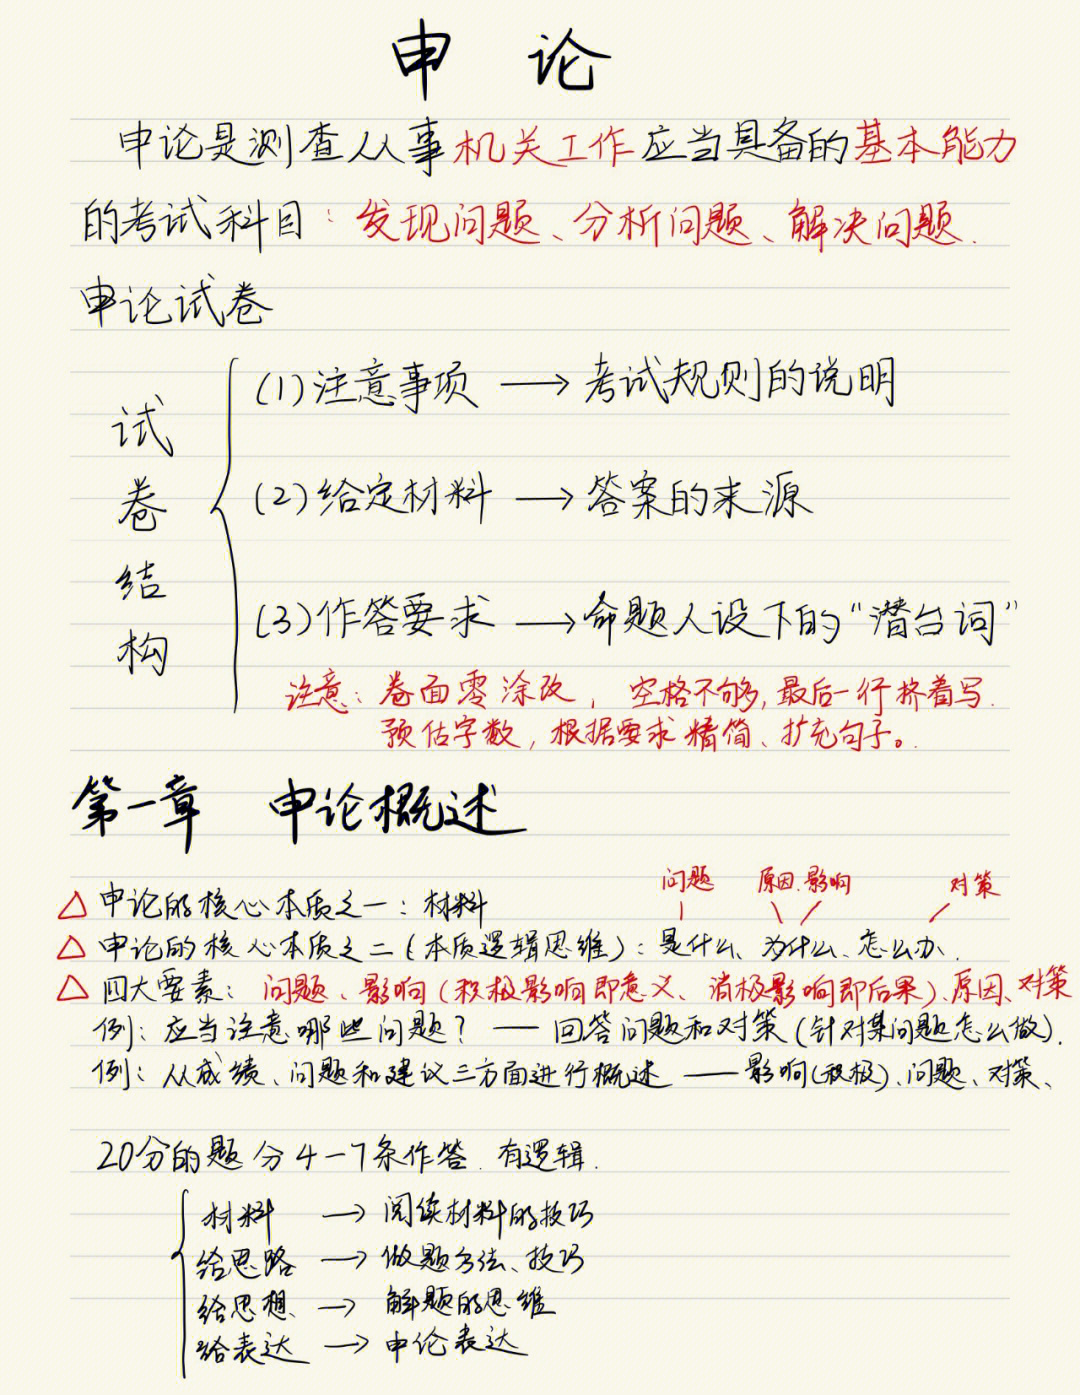 申论
申论是测查从事机关工作应当具备的基本能力
的考试科目：发现问题、分析问题、解决问题.
申论试卷
试卷结构
(1)注意事项 → 考试规则的说明
(2)给定材料 → 答案的来源
(3)作答要求 → 命题人设下的“潜台词”
注意：卷面零涂改，空格不够，最后一行挤着写.
预估字数，根据要求精简、扩充句子。
第一章 申论概述
问题 原因.影响 对策
△ 申论的核心本质之一：材料
△ 申论的核心本质之二(本质逻辑思维)：是什么、为什么、怎么办.
△ 四大要素：问题、影响(积极影响即意义、消极影响即后果)、原因、对策
例：应当注意哪些问题？—— 回答问题和对策(针对某问题怎么做).
例：从成绩、问题和建议三方面进行概述 —— 影响(积极)、问题、对策、
20分的题 分4-7条作答.有逻辑.
材料 → 阅读材料的技巧
给思路 → 做题方法、技巧
给思想 → 解题的思维
给表达 → 申论表达